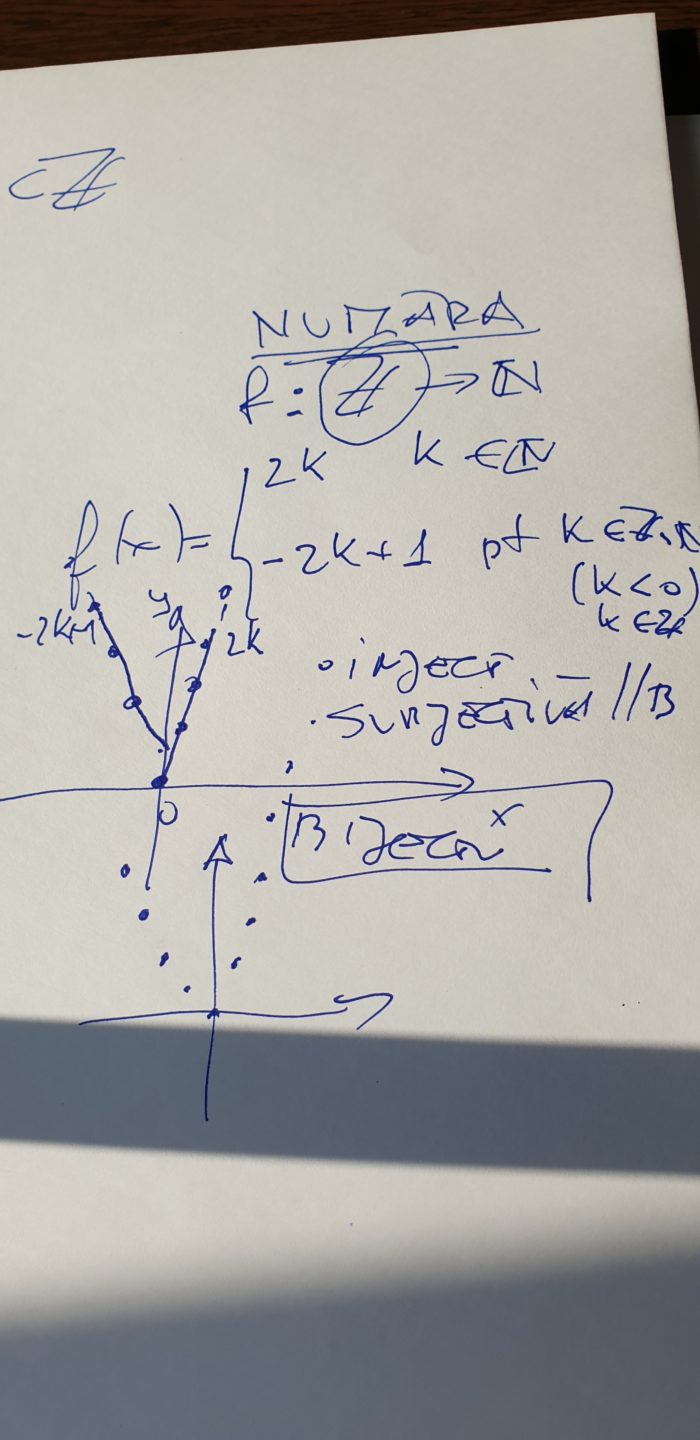 ⊂ℤ
NUMĂRA
f: ℤ → ℕ
f(x)= { 2k k ∈ ℕ
-2k+1 pt k ∈ ℤ\ℕ
(k<0)
k ∈ ℤ
-2k+1 y 2k
• inject
• surjectivă //B
0
Bijectiv x